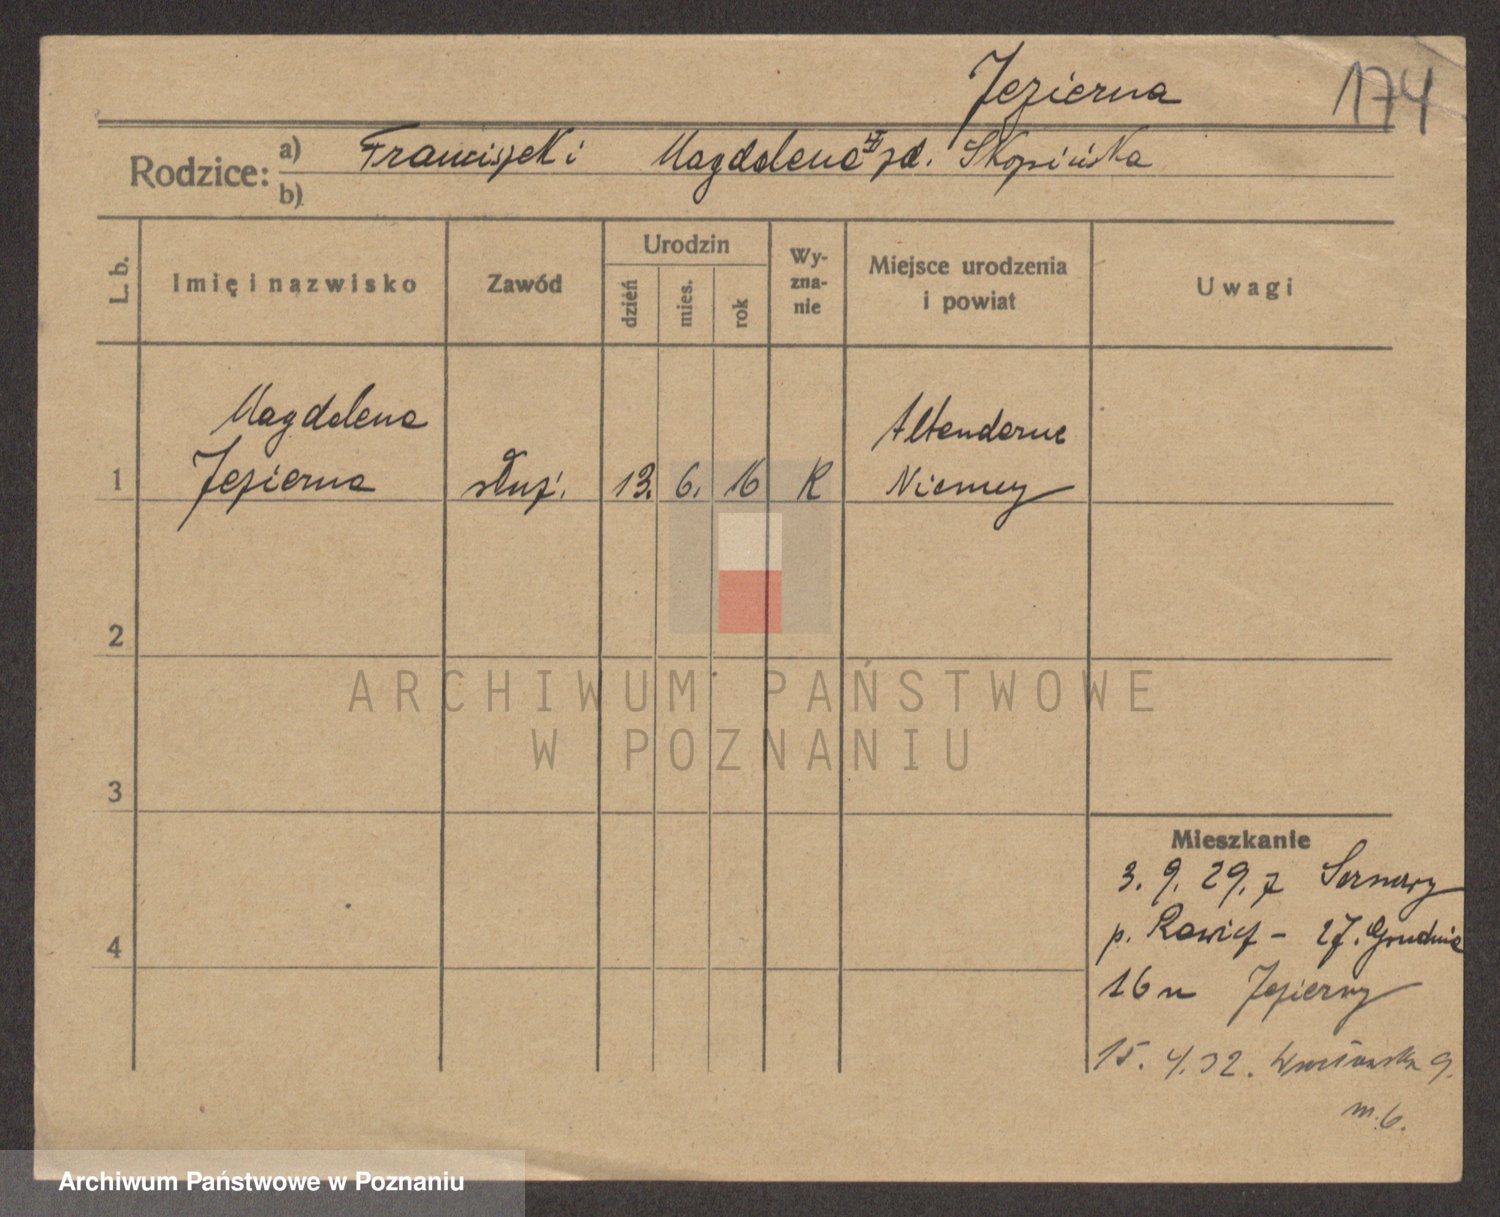 Jezierna
174
Rodzice: a) Franciszek i Magdalena zd. Skopińska
b)
L. b.
Imię i nazwisko
Zawód
Urodzin
dzień
mies.
rok
Wy-
zna-
nie
Miejsce urodzenia
i powiat
Uwagi
Magdalena
Altenderne
1 Jezierna służ. 13. 6. 16 R Niemcy
2
ARCHIWUM PAŃSTWOWE
W POZNANIU
3
Mieszkanie
3. 9. 29. z Sarnowy
p. Rawicz - 27. Grudnia
4
16 u Jezierny
15. 4. 32. 9.
m. 6.
Archiwum Państwowe w Poznaniu